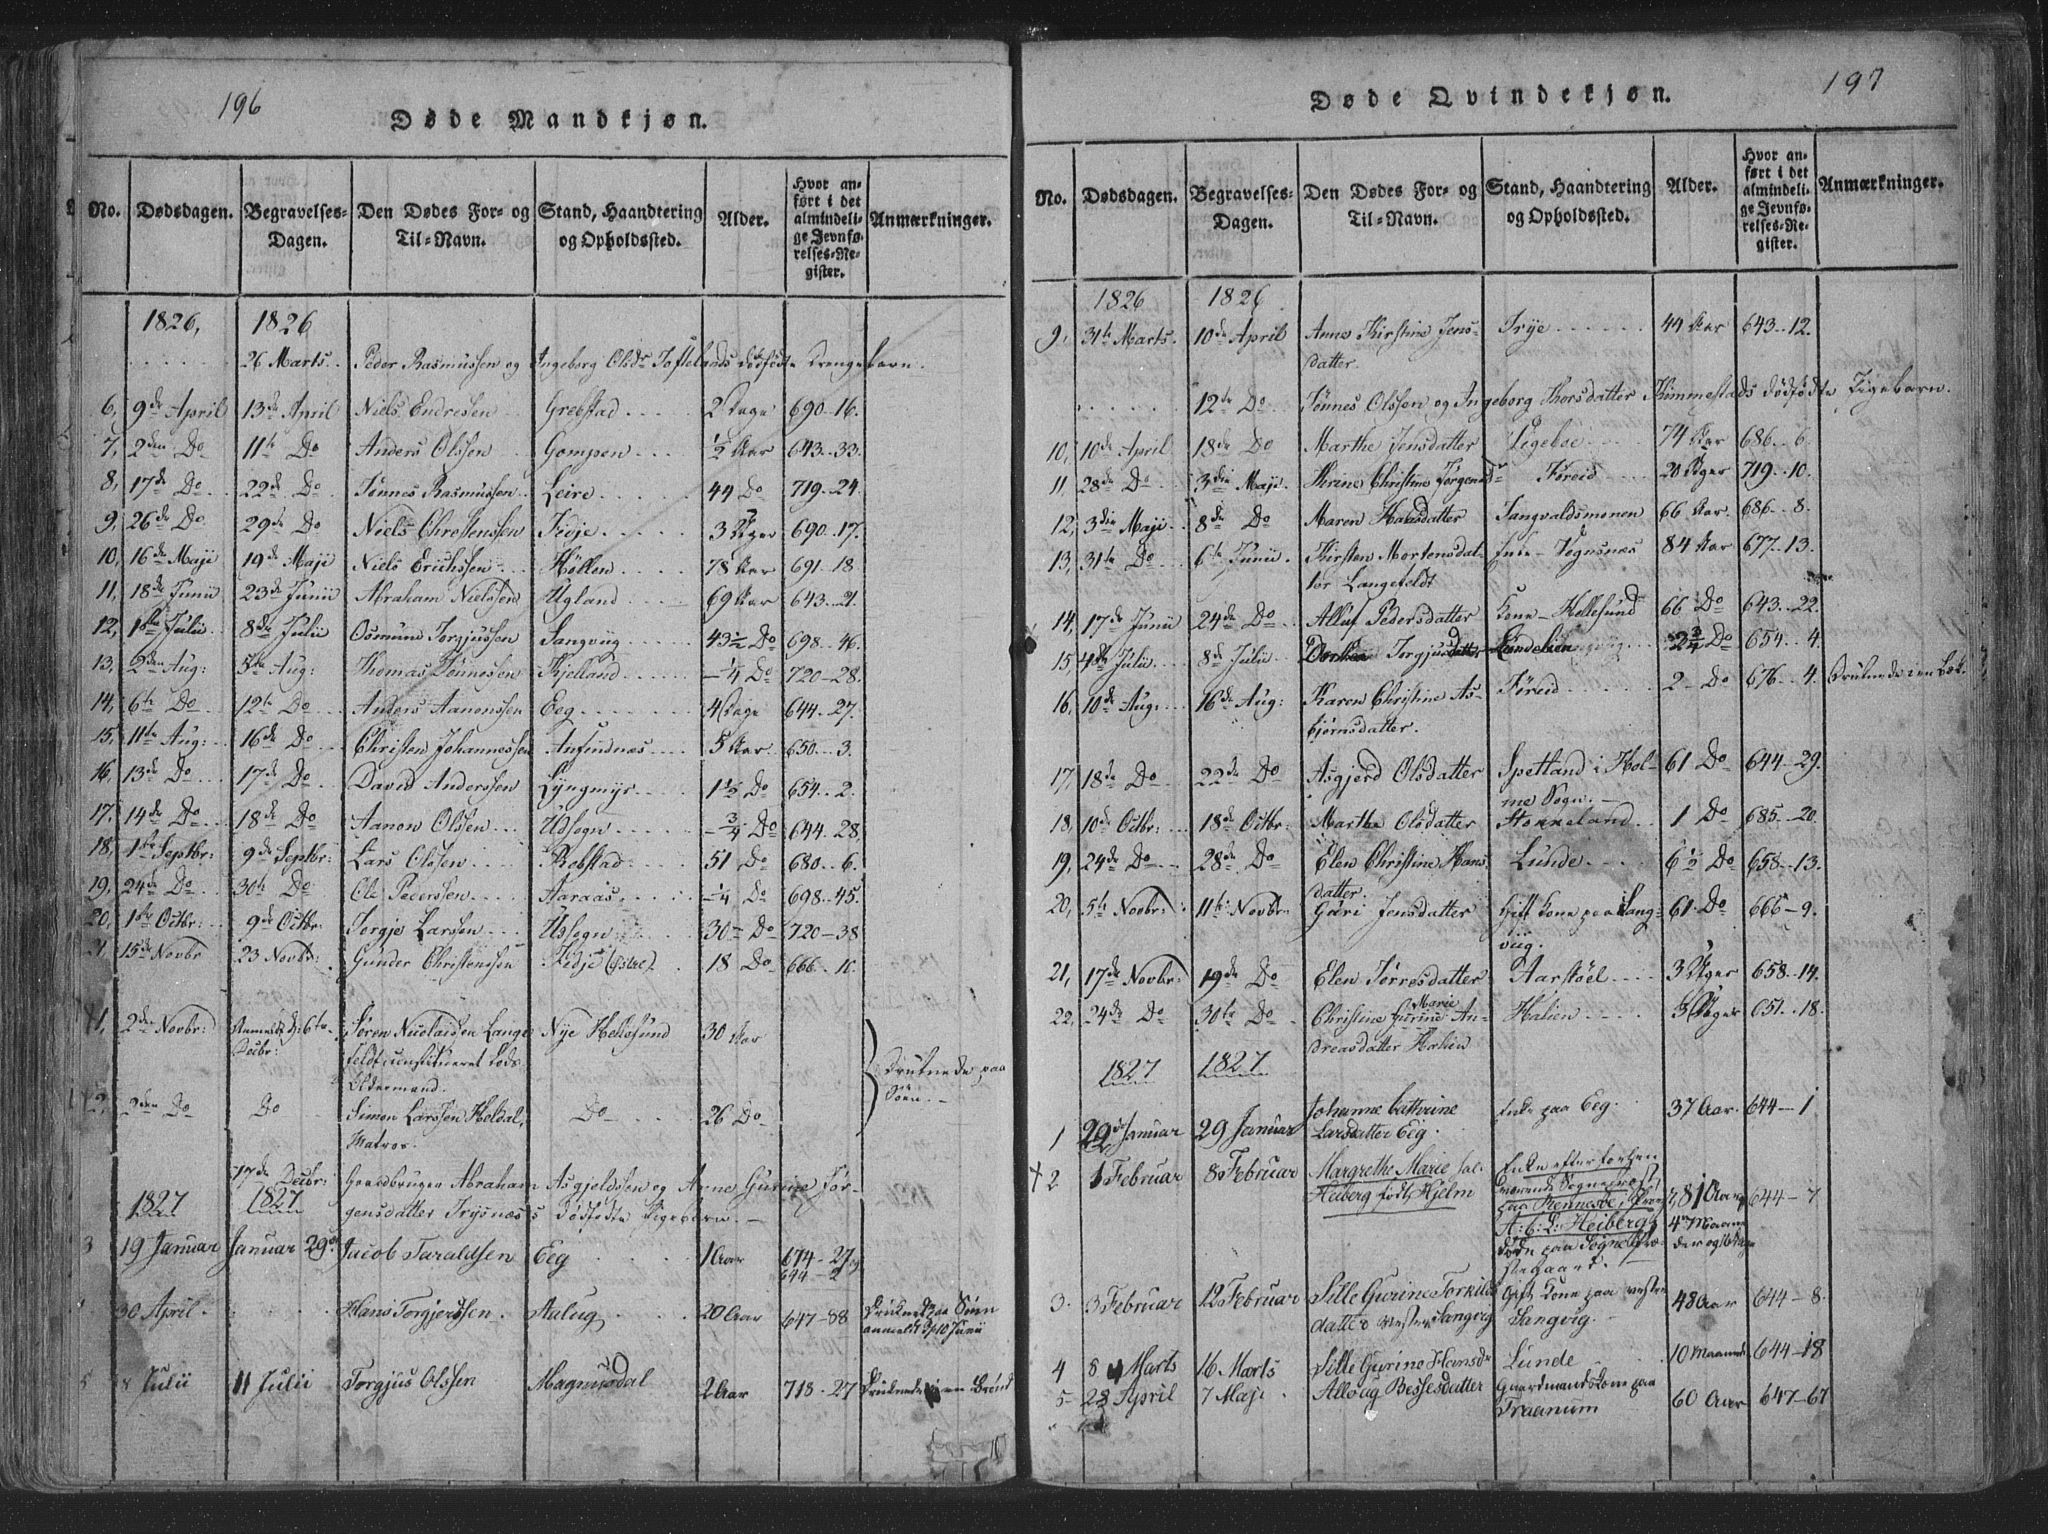 196
Døde Mandkjøn.
No. Dødsdagen. Begravelses-Dagen. Den Dødes For- og Til-Navn. Stand, Haandtering og Opholdssted. Alder. Hvor anført i det almindelige Jevnførelses-Register. Anmærkninger.
1826, 1826
26 Marts. Peder Rasmussen og Ingeborg Olsdr Toftelands dødfødte Drengebarn.
6, 9de April 13de April Niels Endresen Grebstad 2 Dage 690-16.
7, 2den Do 11te Do Anders Olssen Gompen ½ Aar 643-33.
8, 17de Do 22de Do Tønnes Rasmussen Leire 44 Do 719-24.
9, 26de Do 29de Do Niels Christenssen Tidje 3 Uger 690-17.
10, 16de Maji 19de Maji Niels Erichssen Höllen 78 Aar 691-18
11, 18de Junii 23de Junii Abraham Nielssen Ugland 69 Aar 643-21.
12, 1ste Julii 8de Julii Osmund Torgjussen Sangviig 43½ Do 698-46.
13, 2den Aug: 5te Aug: Thomas Tønnessen Kjelland ¼ Do 720-28.
14, 6te Do 12te Do Anders Aanonssen Eeg 4 Dage 644-27.
15, 11te Aug: 16de Do Christen Johannessen Aufindnæs 5 Aar 650-3.
16, 13de Do 17de Do David Anderssen Lyngmyr 1½ Do 654-2.
17, 14de Do 18de Do Aanon Olssen Udsogn ¾ Do 644-28.
18, 1ste Septbr: 9de Septbr: Lars Olssen Robstad 51 Do 680-6.
19, 24de Do 30te Do Ole Pederssen Aaraas ¼ Do 698-45.
20, 1ste Octbr: 9de Octbr: Torgje Larssen Ussogn 30 Do 720-38
21, 15de Novbr 23 Novbr: Gunder Christenssen Tidje 18 Do 666-10.
1, 2den Novbr: Anmeldt d: 6te Decbr: Søren Nicolaissen Langefeldt constitueret Lods Oldermand. Nye Hellesund 30 Aar
2, 2den Do Do Simon Larssen Holdal, Matros. Do 26 Do
Druknede paa Søen.
17de Decbr: Gaardbruger Abraham Asgjeldssen og Anne Gurine Jørgensdatter Trysnæss dødfødte Pigebarn.
1827 1827
3 19 Januar Januar 29de Jacob Taraldsen Eeg 1 Aar 674-27
644-2
30 April. Hans Torgjerssen. Aalug 20 Aar 647-88 Druknet paa Søen anmeldt d 10 Junii
5 8 Julii 11 Julii Torgjus Olssen Magnusdal 2 Aar 713-27 Druknede i en Brønd
197
Døde Qvindekjøn.
No. Dødsdagen. Begravelses-Dagen. Den Dødes For- og Til-Navn. Stand, Haandtering og Opholdssted. Alder. Hvor anført i det almindelige Jevnførelses-Register. Anmærkninger.
1826 1826
9, 31te Marts. 10de April Anne Kirstine Jensdatter. Trye 44 Aar 643-12.
12te Do Tønnes Olssen og Ingeborg Thorsdatter Kimmestads dødfødte Pigebarn.
10, 10de April 18de Do Marthe Jensdatter Vigeboe 74 Aar 686-6.
11, 28de Do 3die Maji Thrine Christine Jørgensdr Føreid 20 Uger 719-10.
12, 3die Maji 8de Do Maren Hansdatter Tangvaldsmonen 66 Aar. 686-8.
13, 31te Do 6te Junii. Kirsten Mortensdatter Langefeldt Enke-Vognsnæs 84 Aar 677-13.
14, 17de Junii 24de Do Alluf Pedersdatter Kone-Hellesund 66 Do 643-22.
15, 4de Julii 8de Julii Dorthea Torgjusdatter 2¾ Do 654-4.
16, 10de Aug: 16de Aug: Karen Christine Asbjørnsdatter. Føreid 2 Do 676-4. Druknede i en Bæk
17, 18de Do 22de Do Asgjerd Olsdatter Spetland i Holme Sogn. 61 Do 644-29.
18, 10de Octbr: 18de Octbr: Marthe Olsdatter Stokkeland 1 Do 685-20.
19, 24de Do 28de Do Elen Christine Hansdatter. Lunde 6½ Do 658-13.
20, 5te Novbr: 11te Novbr Gûri Jensdatter Gift Kone paa Sangviig. 61 Do 665-9.
21, 17de Novbr: 19de Do Elen Torresdatter Aarstöel 3 Uger 658-14.
22, 24de Do 30te Do Christine Gurine Marie Andreasdatter Halien Halien 3 Uger 651-18.
1827 1827
1 29 Januar 29 Januar Johanne Cathrine Larsdatter Eeg. Enke paa Eeg. 37 Aar. 644-1
+2 1 Februar 8 Februar Margrethe Marie Sal. Heiberg født Hjelm Enke efter forhenværende Sogneprest paa Rennesøe, A: C: L: Heiberg, døde paa Søgne Præstegaard. 81 Aar 4 Maaneder og 16 Dage 644-7
3. 3 Februar 12 Februar Sille Gurine Torkildsdatter vester Sangvig Gift Kone paa vestre Sangvig. 48 Aar 644-8.
4 8 Marts 16 Marts Sille Gurine Hansdr Lunde 10 Maaneder 644-18
5- 28 April 7 Maji Alloug Bessesdatter Gaardmandskone paa Traanum 60 Aar 647-67